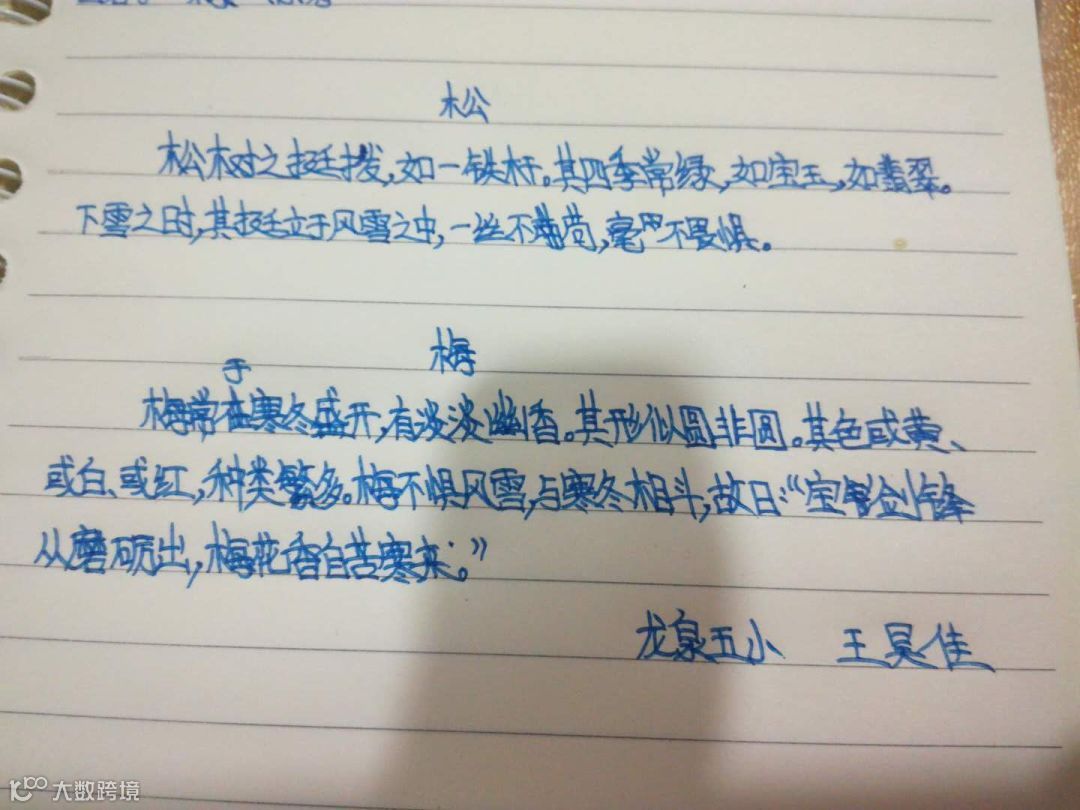 松
松树之挺拨,如一铁杆。其四季常绿,如宝玉,如翡翠。
下雪之时,其挺立于风雪之中,一丝不苟,毫不畏惧。
梅
于
梅常在寒冬盛开,有淡淡幽香。其形似圆非圆。其色或黄、
或白、或红,种类繁多。梅不惧风雪,与寒冬相斗,故曰:“宝剑锋
从磨砺出,梅花香自苦寒来。”
龙泉五小 王昊佳
大数跨境